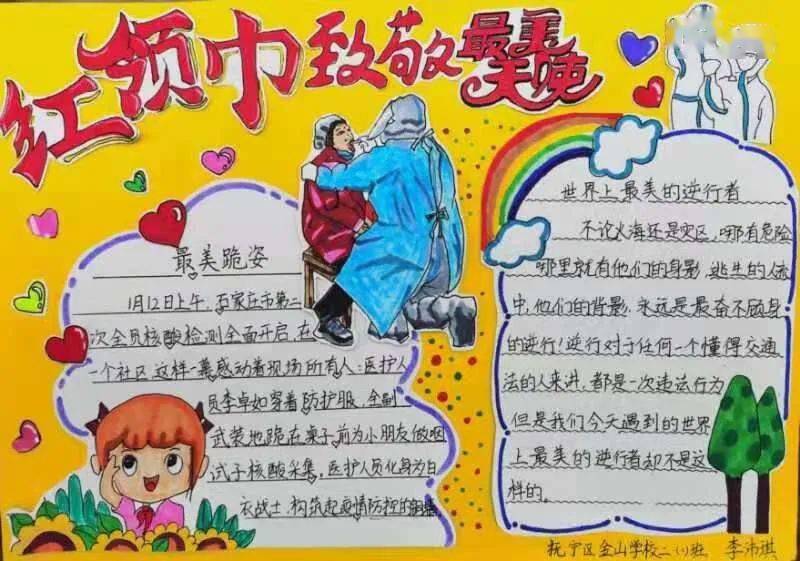 红领巾致敬最美天使
最美跪姿
1月12日上午,石家庄市第二
次全员核酸检测全面开启,在
一个社区,这样一幕感动着现场所有人:医护人
员李卓如穿着防护服,全副
武装地跪在桌子前为小朋友做咽
试子核酸采集,医护人员化身为白
衣战士,构筑起疫情防控的
世界上最美的逆行者
不论火海还是灾区,哪有危险
哪里就有他们的身影,逃生的人流
中,他们的背影,永远是最奋不顾身
的逆行!逆行对于任何一个懂得交通
法的人来讲,都是一次违法行为
但是我们今天遇到的世界
上最美的逆行者却不是这
样的。
抚宁区金山学校二(1)班 李沛琪